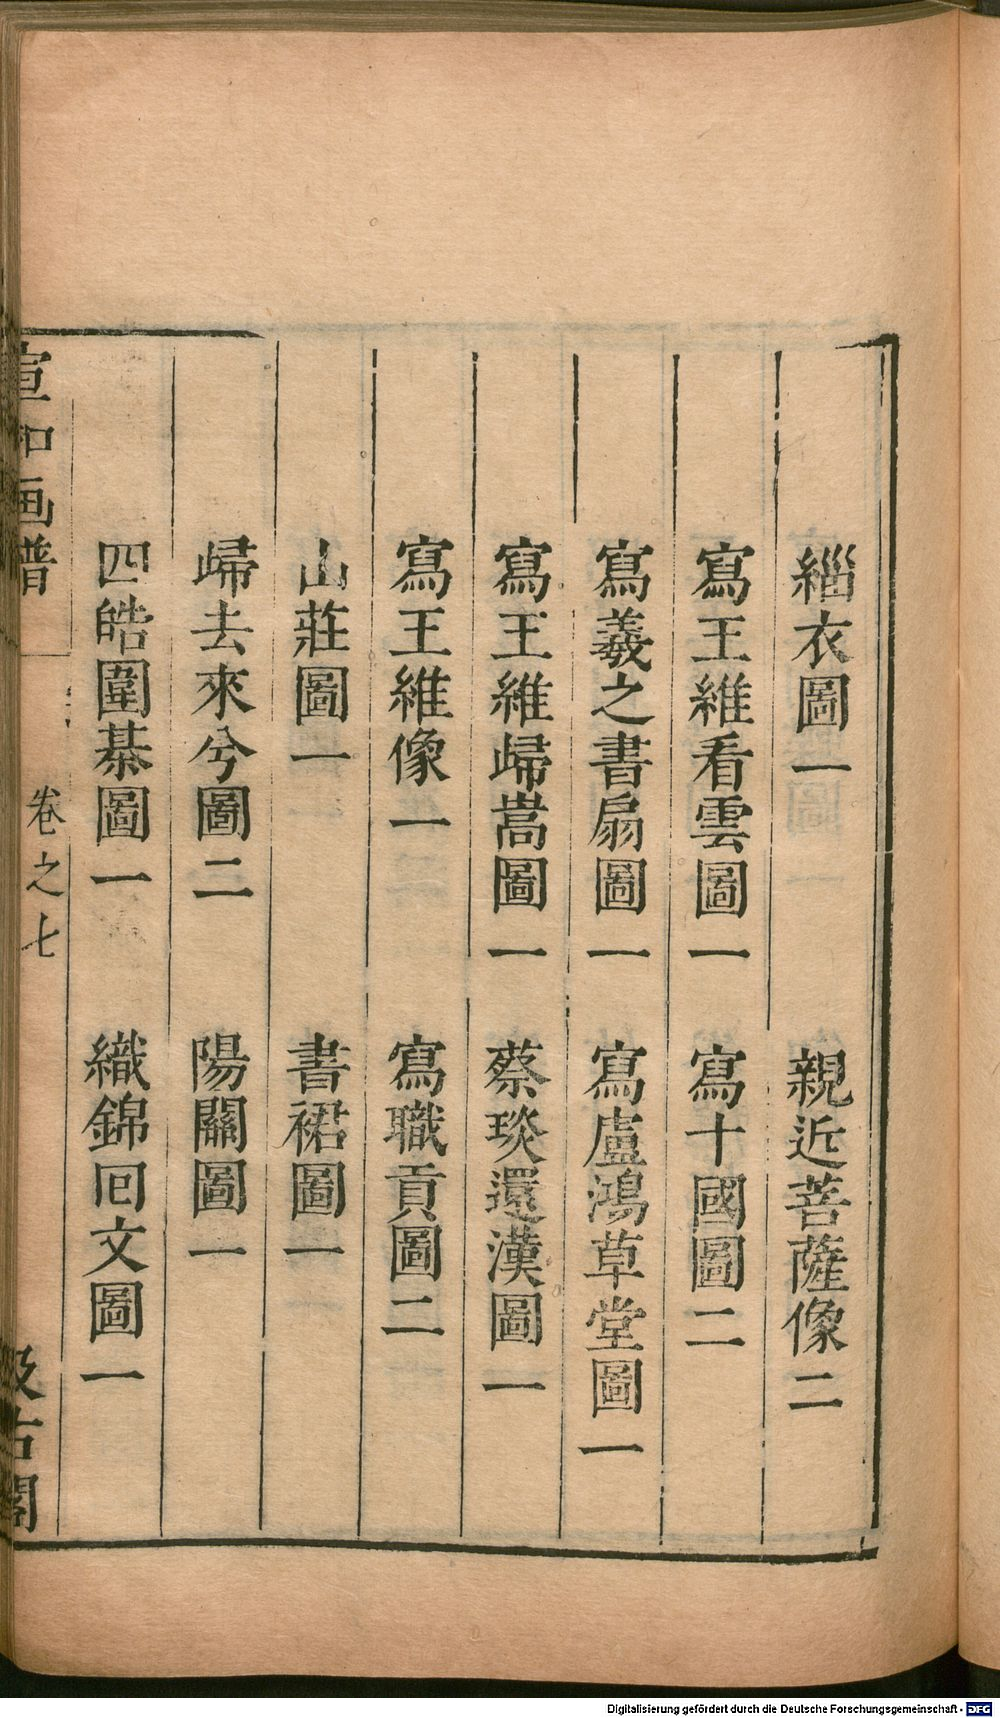 緇衣圖一　親近菩薩像二
寫王維看雲圖一　寫十國圖二
寫羲之書扇圖一　寫盧鴻草堂圖一
寫王維歸嵩圖一　蔡琰還漢圖一
寫王維像一　寫職貢圖二
山莊圖一　書裙圖一
歸去來兮圖二　陽關圖一
四皓圍棊圖一　織錦回文圖一
宣和画譜　卷之七　汲古閣
Digitalisierung gefördert durch die Deutsche Forschungsgemeinschaft - DFG